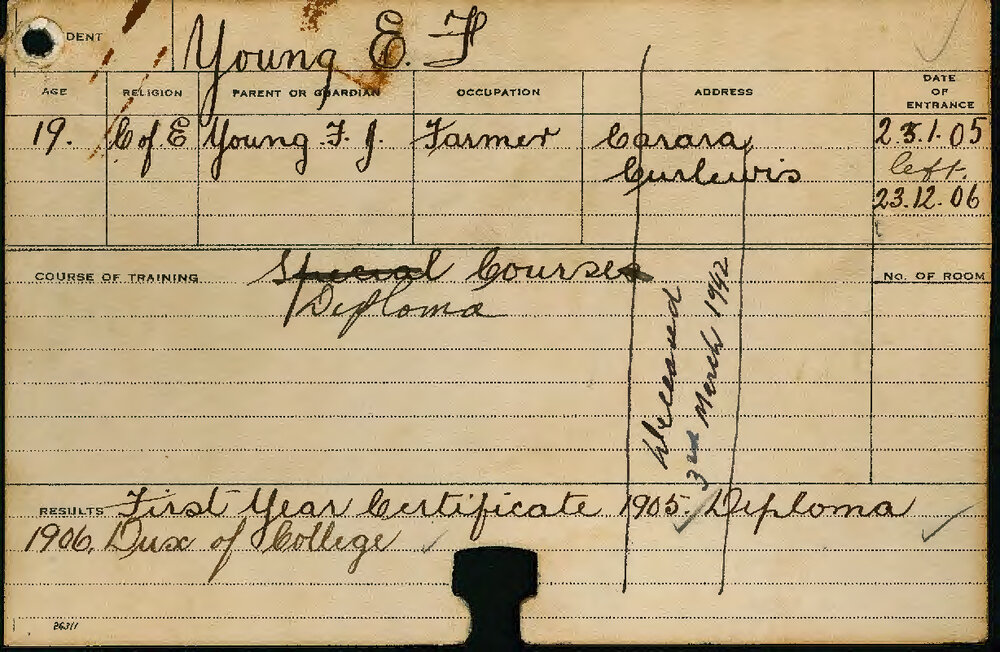 DENT Young E. F
AGE RELIGION PARENT OR GUARDIAN OCCUPATION ADDRESS DATE OF ENTRANCE
19. C of E Young F. J. Farmer Carara, Curlewis 23.1.05
left.
23.12.06
COURSE OF TRAINING Special Course No. OF ROOM
Diploma
Deceased
3rd March 1942
RESULTS First Year Certificate 1905. Diploma
1906. Dux of College
26311